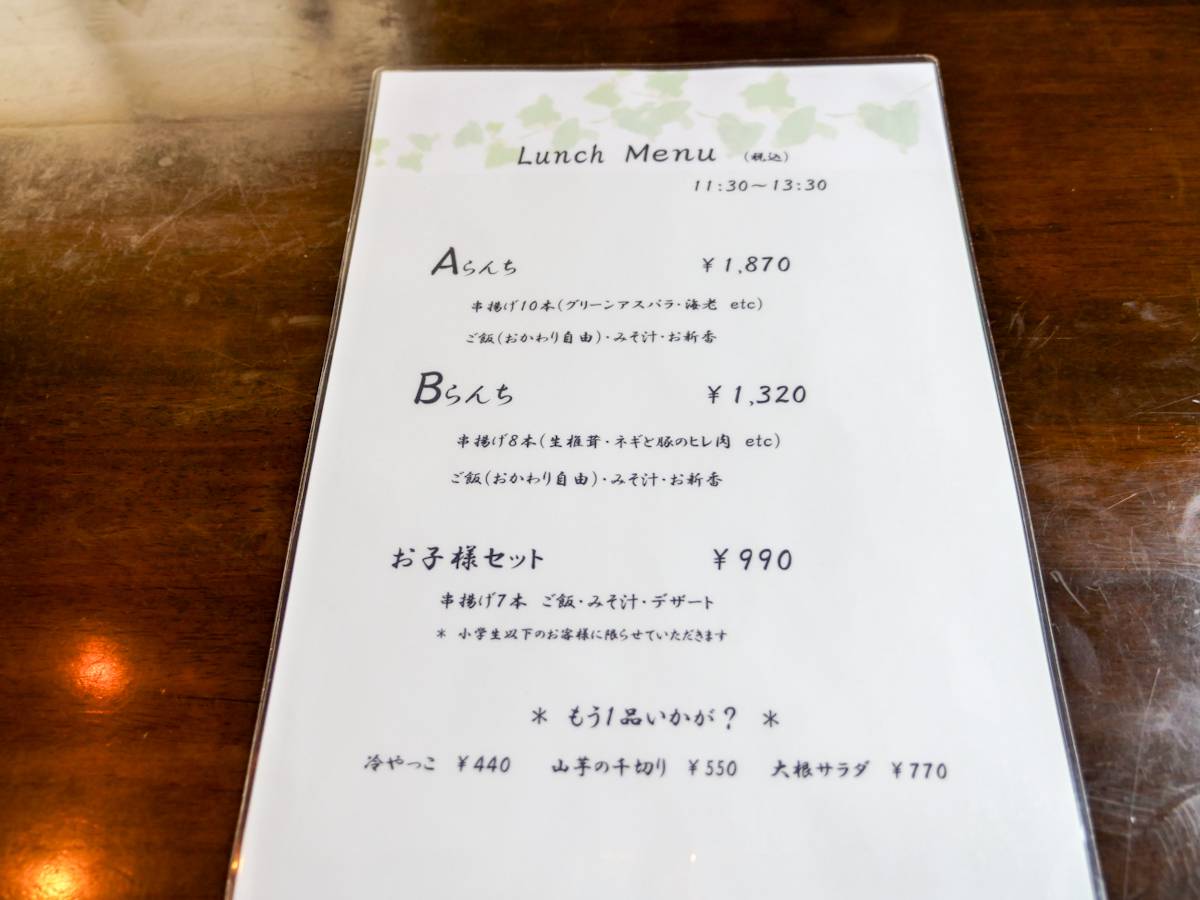 Lunch Menu (税込)
11:30～13:30
Aらんち ￥1,870
串揚げ10本(グリーンアスパラ・海老 etc)
ご飯(おかわり自由)・みそ汁・お新香
Bらんち ￥1,320
串揚げ8本(生椎茸・ネギと豚のヒレ肉 etc)
ご飯(おかわり自由)・みそ汁・お新香
お子様セット ￥990
串揚げ7本 ご飯・みそ汁・デザート
* 小学生以下のお客様に限らせていただきます
* もう1品いかが? *
冷やっこ ￥440 山芋の千切り ￥550 大根サラダ ￥770